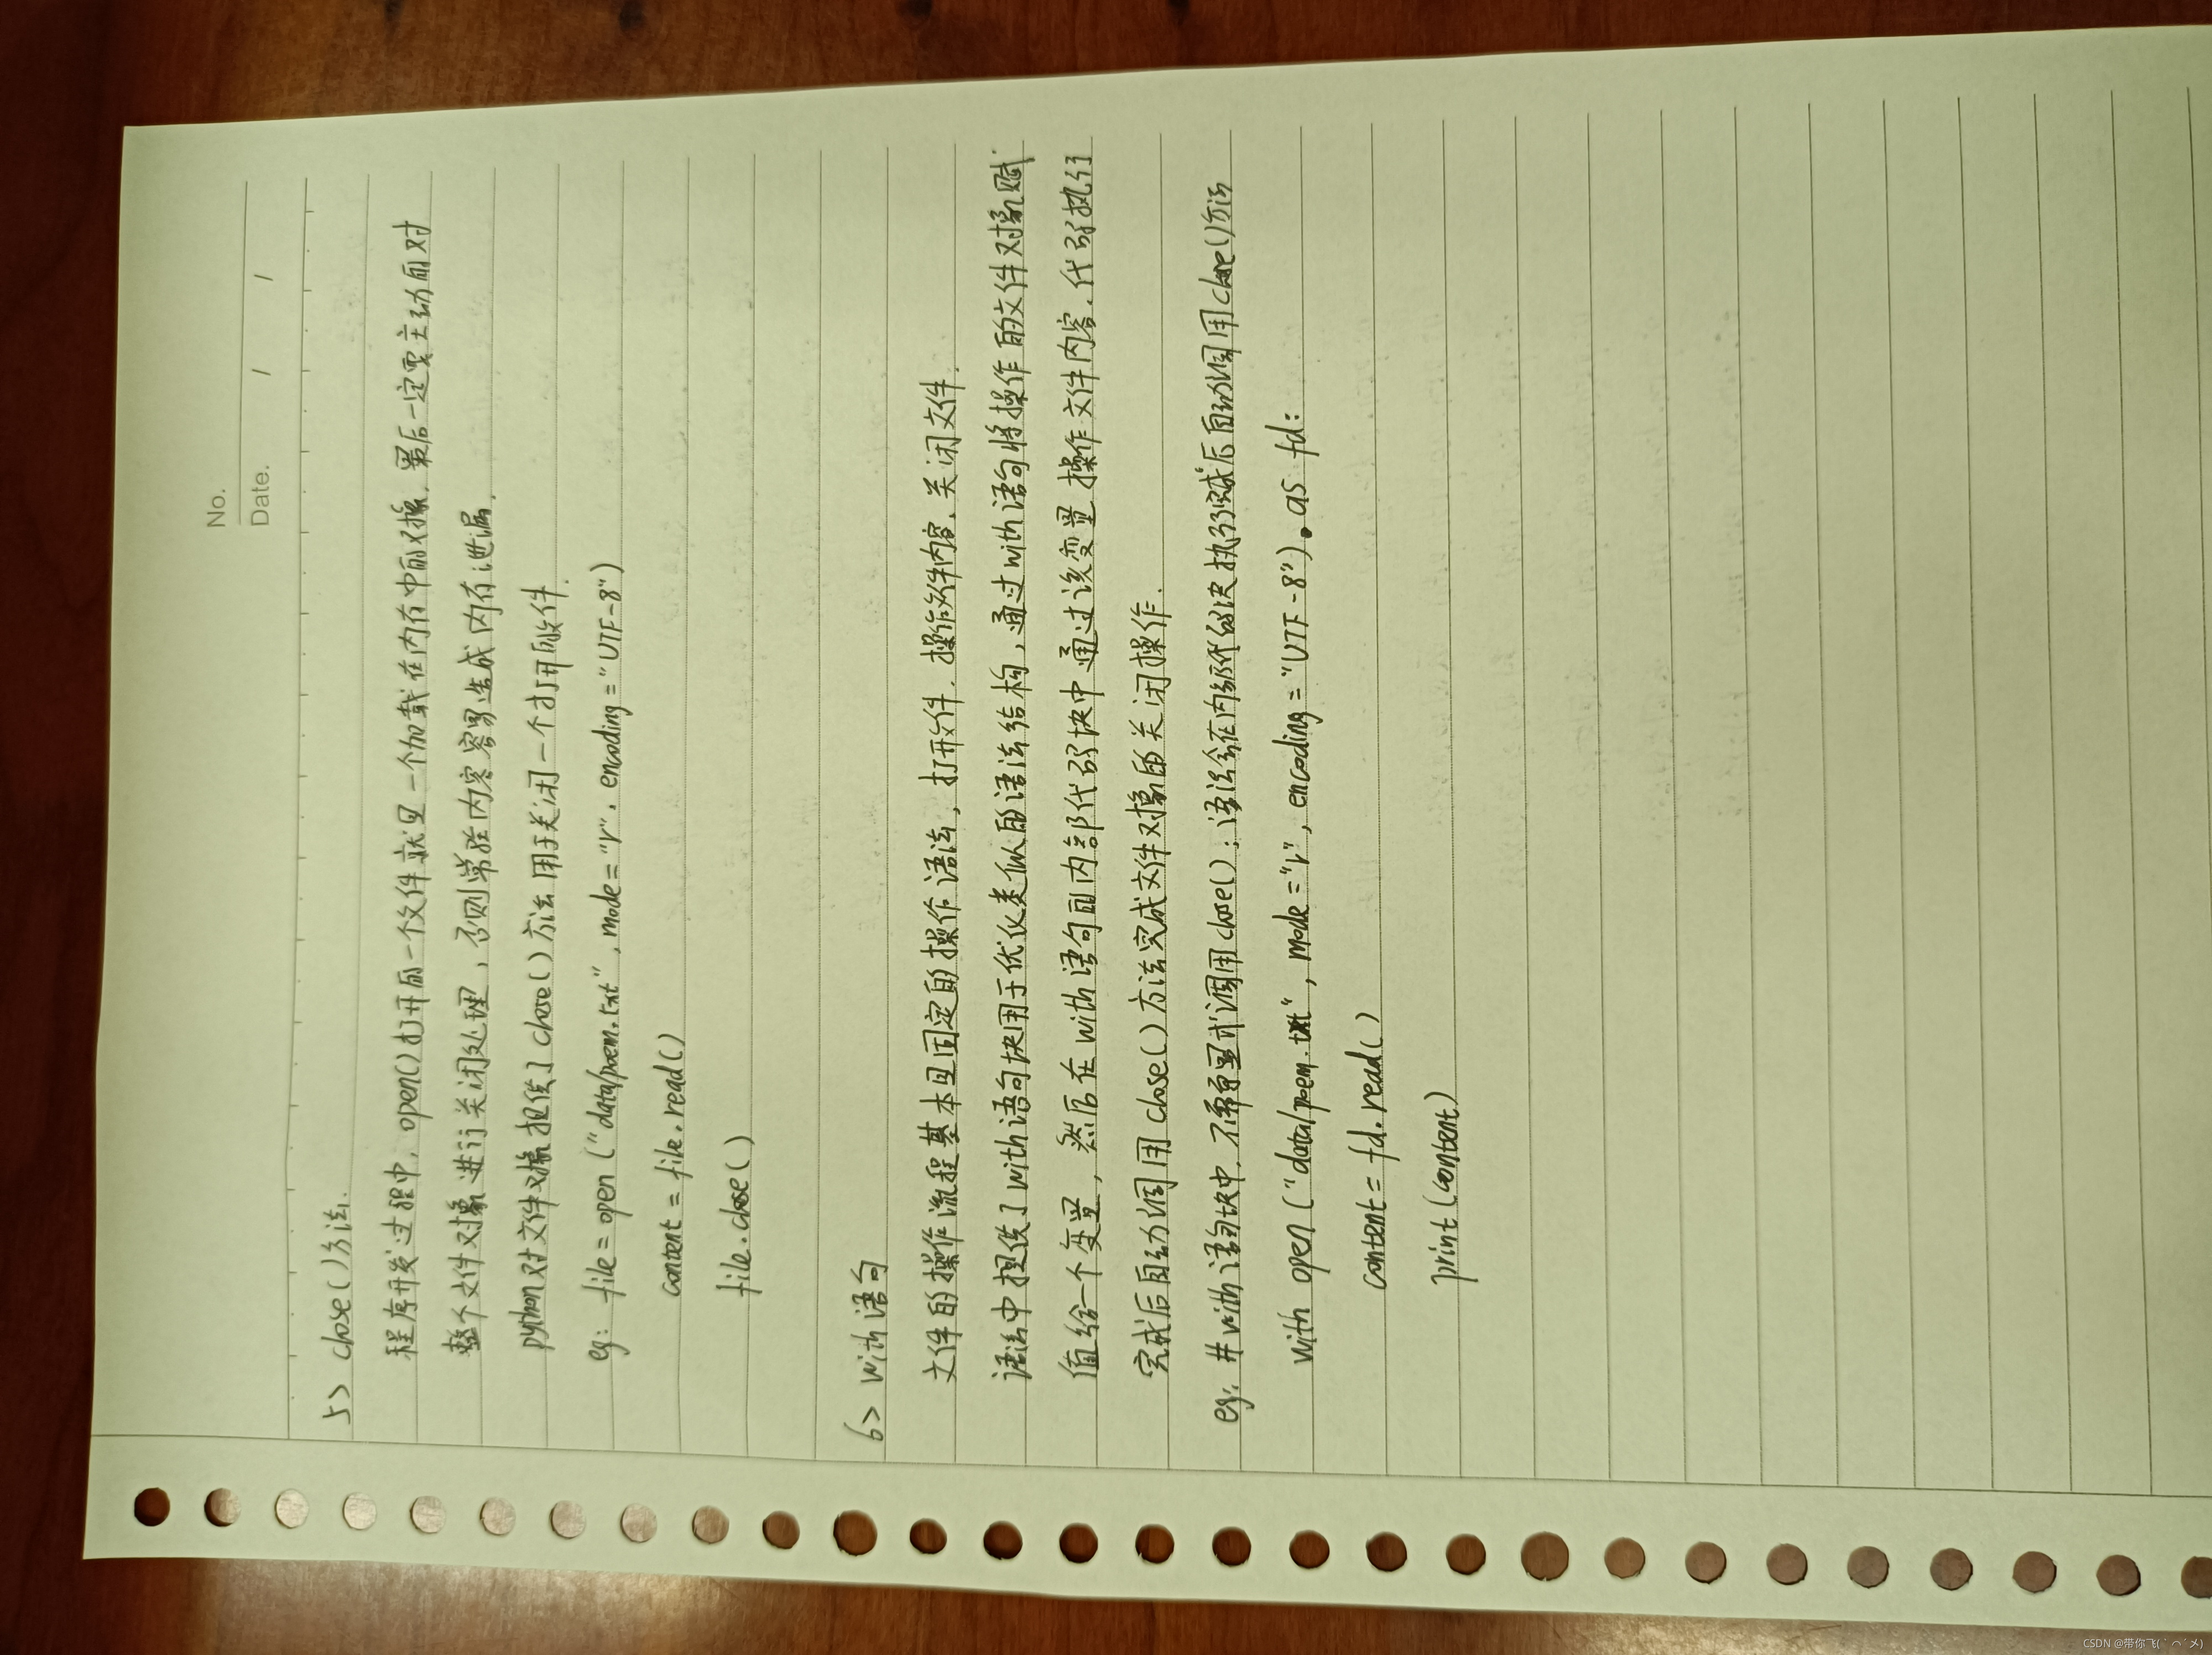 No.
Date. / /
5> close()方法.
程序开发过程中, open()打开的一个文件就是一个加载在内存中的对象. 最后一定要主动的对
整个文件对象进行关闭处理, 否则常驻内容容易造成内存泄漏.
python对文件对象提供了close()方法用于关闭一个打开的文件.
eg: file = open("data/poem.txt", mode="r", encoding="UTF-8")
content = file.read()
file.close()
6> with语句
文件的操作流程基本是固定的操作语法, 打开文件. 操作文件内容、关闭文件.
语法中提供了with语句块用于优化类似的语法结构, 通过with语句将操作的文件对象赋
值给一个变量, 然后在with语句的内部代码块中通过该变量操作文件内容. 代码执行
完成后自动调用close()方法完成文件对象的关闭操作.
eg: #with语句块中, 不需要显式调用close(); 语法会在内部代码块执行完成后自动调用close()方法
with open("data/poem.txt", mode="r", encoding="UTF-8") as fd:
content = fd.read()
print(content)
CSDN @带你飞(｀⌒´メ)